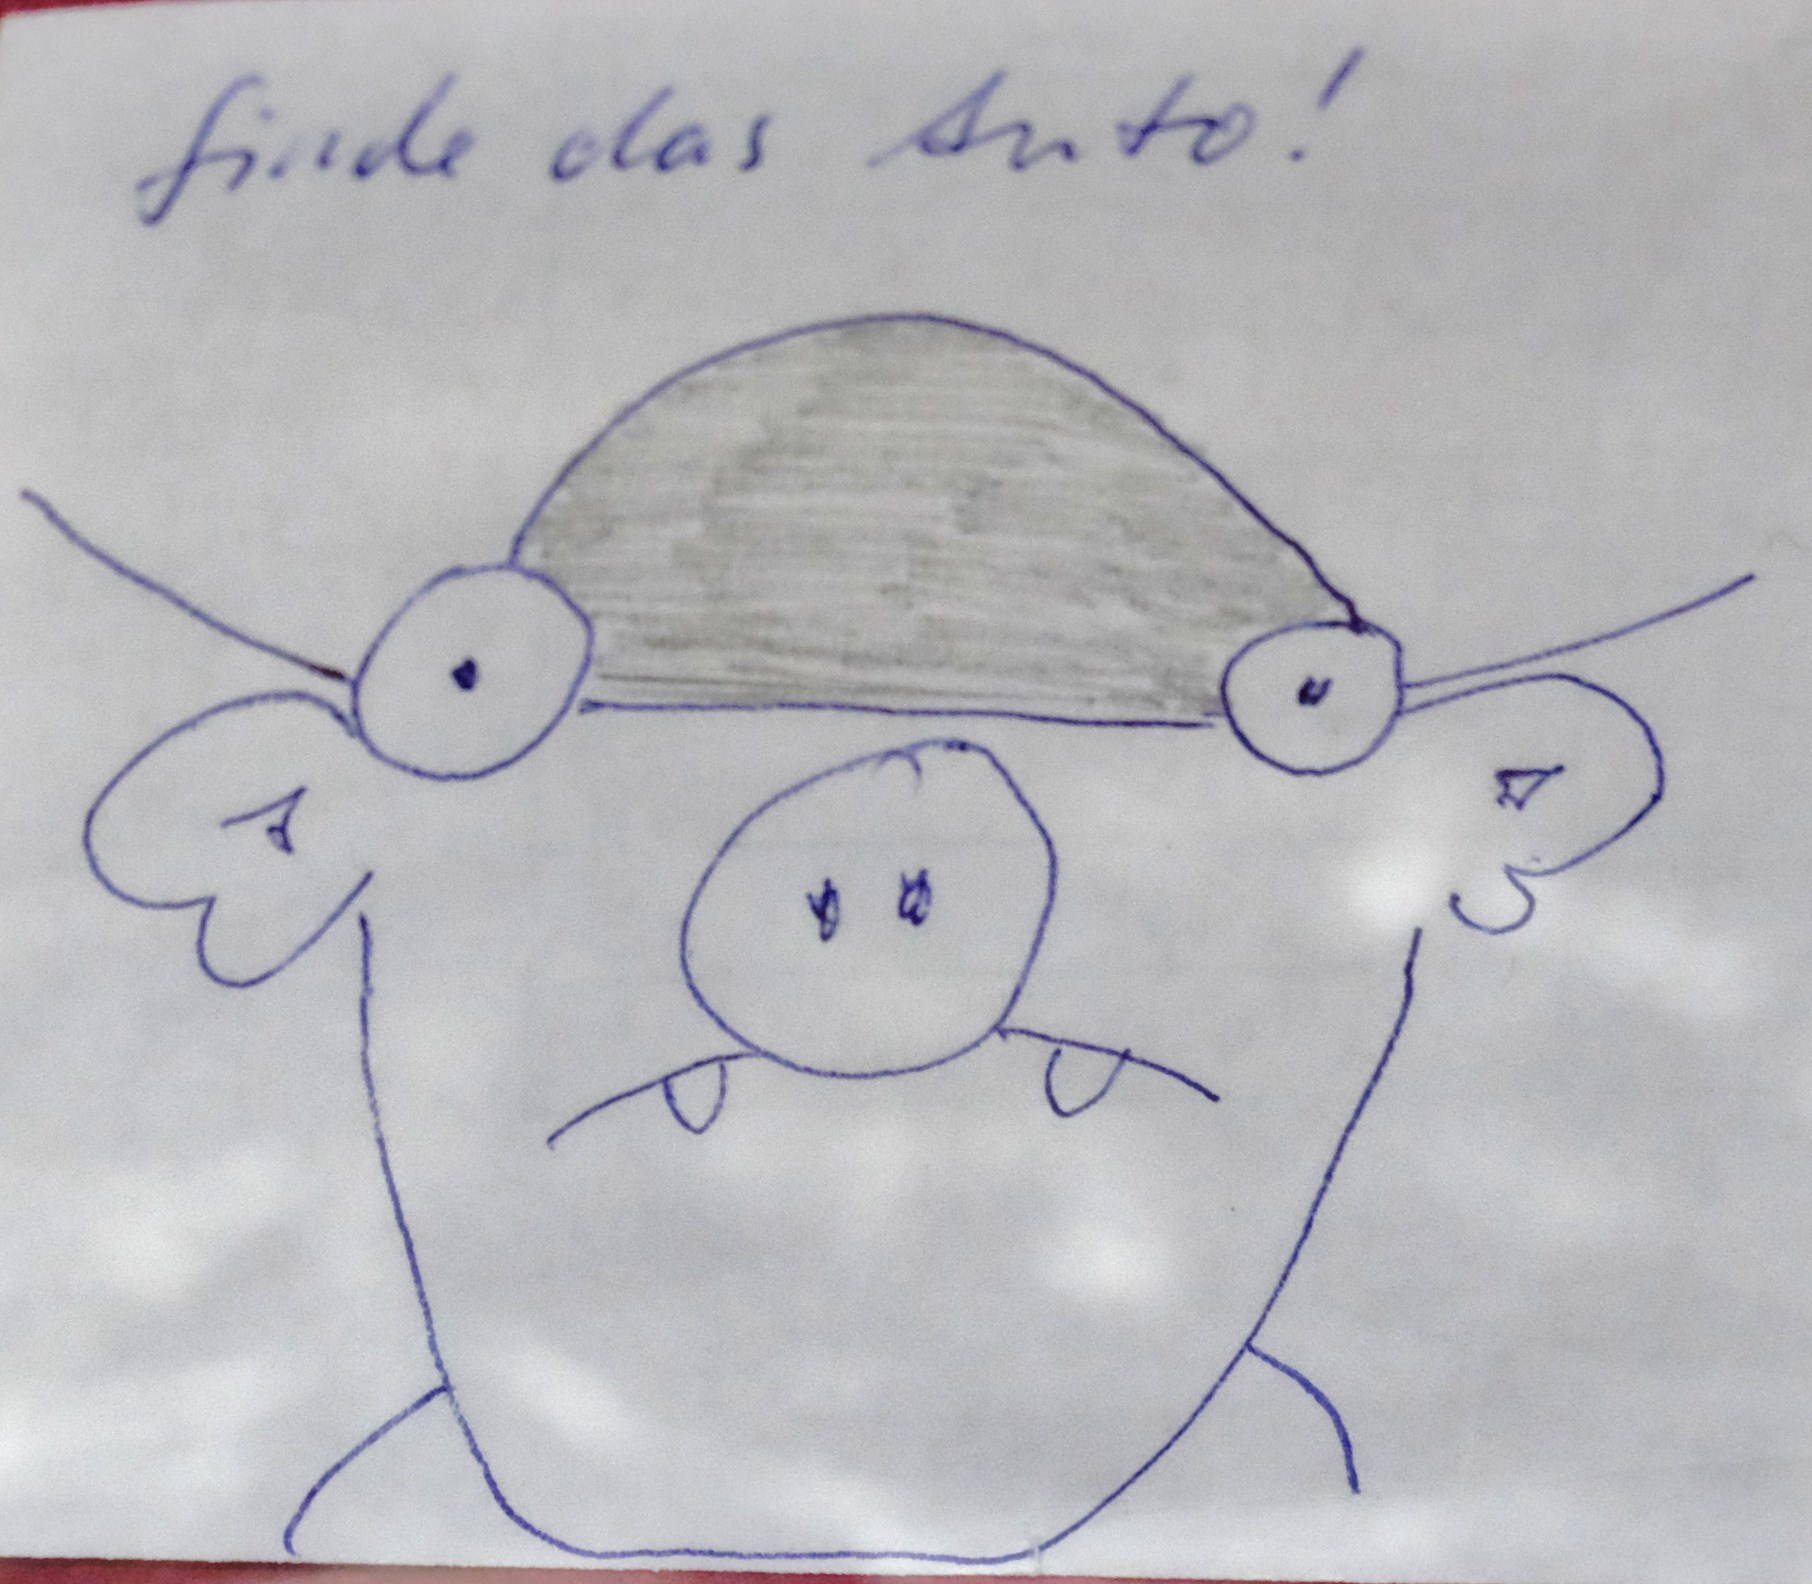 finde das Auto!